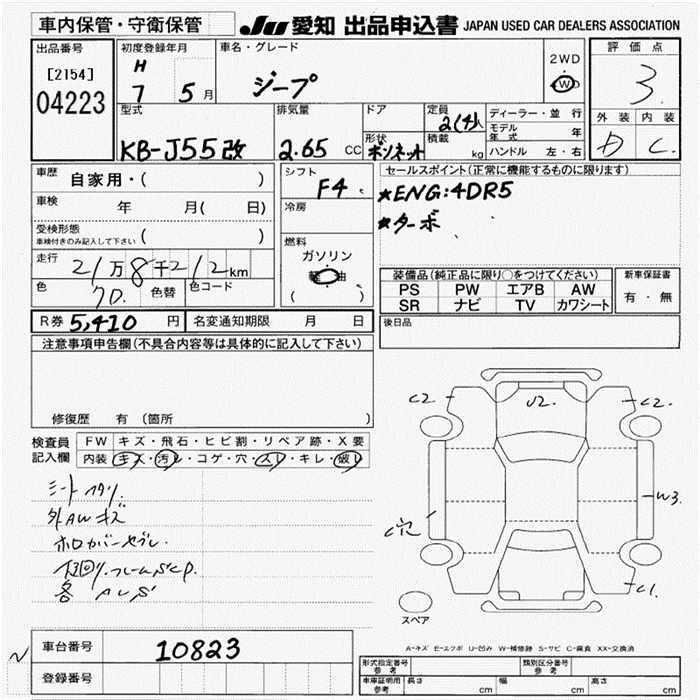 車内保管・守衛保管
JU 愛知 出品申込書 JAPAN USED CAR DEALERS ASSOCIATION
出品番号
[2154]
04223
初度登録年月
H
7 5 月
車名・グレード
ジープ
2WD
4WD
評価点
3
外装 内装
D C
型式
KB-J55改
排気量
2.65 CC
ドア
形状
ボンネット
定員
2(4)人
積載
kg
ディーラー・並 行
モデル年式 年
ハンドル 左・右
車歴
自家用・( )
車検
年 月( 日)
受検形態
車検付きのみ記入して下さい ( )
走行
21万8千212km
色
70.
色替
色コード
シフト
F4
冷房
燃料
ガソリン
軽油
( )
セールスポイント(正常に機能するものに限ります)
★ENG:4DR5
★ターボ
装備品(純正品に限り○をつけてください)
PS PW エアB AW
SR ナビ TV カワシート
新車保証書
有・無
R券 5,410 円
名変通知期限 月 日
後日品
注意事項申告欄(不具合内容等は具体的に記入して下さい)
修復歴 有 (箇所 )
検査員
記入欄
FW キズ・飛石・ヒビ割・リペア跡・X要
内装 キズ・汚レ・コゲ・穴・スレ・キレ・破レ
シートヘタリ
外AWキズ
ホロカバーヤブレ
下回り.フレームSCP.
各 AUS
C2
U2.
C2.
W3
C穴
C1.
スペア
A-キズ E-エクボ U-凹み W-補修跡 S-サビ C-腐食 XX-交換済
車台番号 10823
登録番号
形式指定番号
参考
類別区分番号
参考
車庫証明用
参考
長さ cm
幅 cm
高さ cm